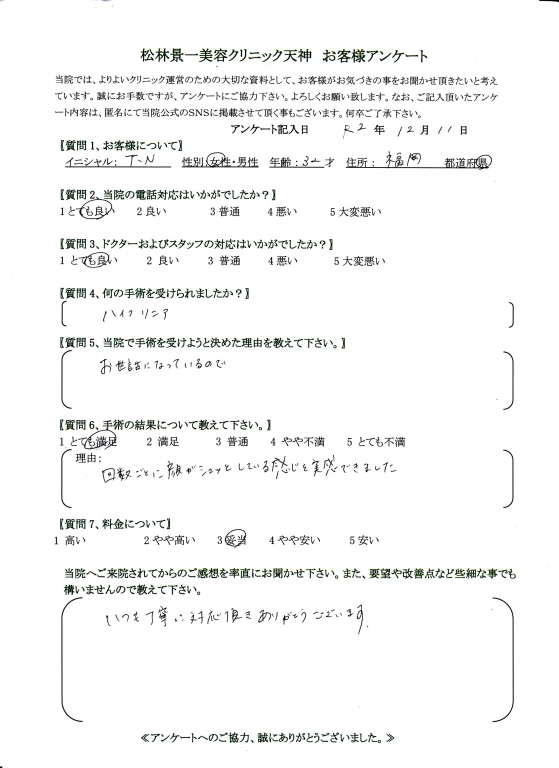 松林景一美容クリニック天神　お客様アンケート
当院では、よりよいクリニック運営のための大切な資料として、お客様がお気づきの事をお聞かせ頂きたいと考え
ています。誠にお手数ですが、アンケートにご協力下さい。よろしくお願い致します。なお、ご記入頂いたアンケ
ート内容は、匿名にて当院公式のSNSに掲載させて頂く事もございます。何卒ご了承下さい。
アンケート記入日　R2 年 12 月 11 日
【質問1、お客様について】
イニシャル： T.N　性別：女性・男性　年齢：32才　住所： 福岡　都道府県
【質問2、当院の電話対応はいかがでしたか？】
1 とても良い　2 良い　3 普通　4 悪い　5 大変悪い
【質問3、ドクターおよびスタッフの対応はいかがでしたか？】
1 とても良い　2 良い　3 普通　4 悪い　5 大変悪い
【質問4、何の手術を受けられましたか？】
ハイフ リニア
【質問5、当院で手術を受けようと決めた理由を教えて下さい。】
お世話になっているので
【質問6、手術の結果について教えて下さい。】
1 とても満足　2 満足　3 普通　4 やや不満　5 とても不満
理由：
回数ごとに顔がシュッとしている感じを実感できました
【質問7、料金について】
1 高い　2 やや高い　3 妥当　4 やや安い　5 安い
当院へご来院されてからのご感想を率直にお聞かせ下さい。また、要望や改善点など些細な事でも
構いませんので教えて下さい。
いつも丁寧に対応頂きありがとうございます。
≪アンケートへのご協力、誠にありがとうございました。≫